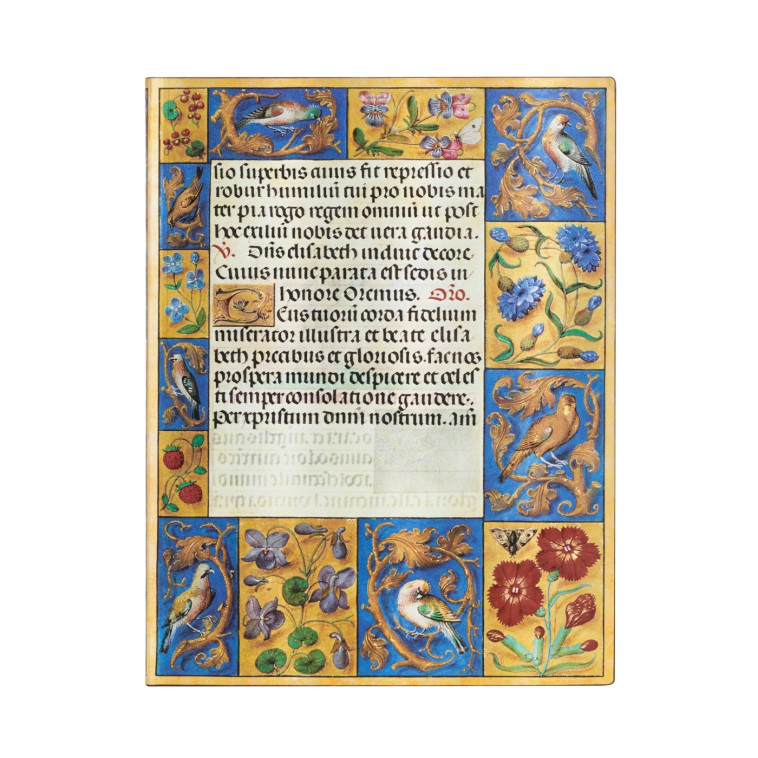 sio superbis cuius fit repressio et
robur humiliū tui pro nobis ma
ter pia rogo regem omniū ut post
hoc exiliū nobis det uera gaudia.
V. Dn̄s elisabeth induit decore.
Cuius nunc parata est sedis in
honore Oremus. Or̄o.
Deus tuorū corda fidelium
miserator illustra et beate elisa
beth precibus et gloriosis. fac nos
prospera mundi despicere et celes
ti semper consolatione gaudere.
Per xp̄istum dnm̄ nostrum. am̄